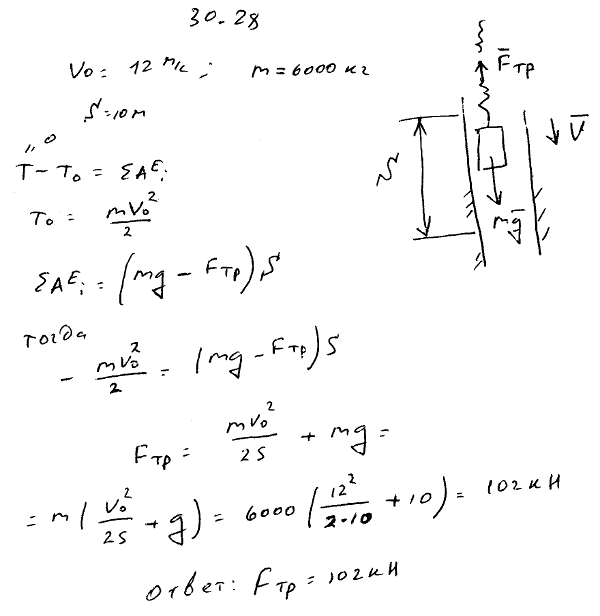 30.28
V₀ = 12 м/с ; m = 6000 кг
S = 10 м
F̄тр
V̄
S
mḡ
"0
T - T₀ = ΣAᴱᵢ
T₀ = mV₀²/2
ΣAᴱᵢ = (mg - Fтр) S
тогда
- mV₀²/2 = (mg - Fтр) S
Fтр = mV₀²/2S + mg =
= m (V₀²/2S + g) = 6000 (12²/2·10 + 10) = 102 кН
ответ: Fтр = 102 кН